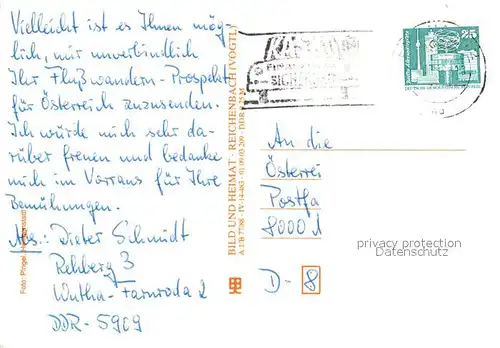 Vielleicht ist es Ihnen mög
lich, mir unverbindlich
Ihr Flußwandern-Prospekt
für Österreich zuzusenden.
Ich würde mich sehr da-
rüber freuen und bedanke
mich im Vorraus für Ihre
Bemühungen.
Abs.: Dieter Schmidt
Rehberg 3
Wutha-Farnroda 2
DDR-5909
Foto: Pingel,
BILD UND HEIMAT · REICHENBACH (VOGTL)
An die
Österrei
Postfa
8000 1
D-8
privacy protection
Datenschutz
25